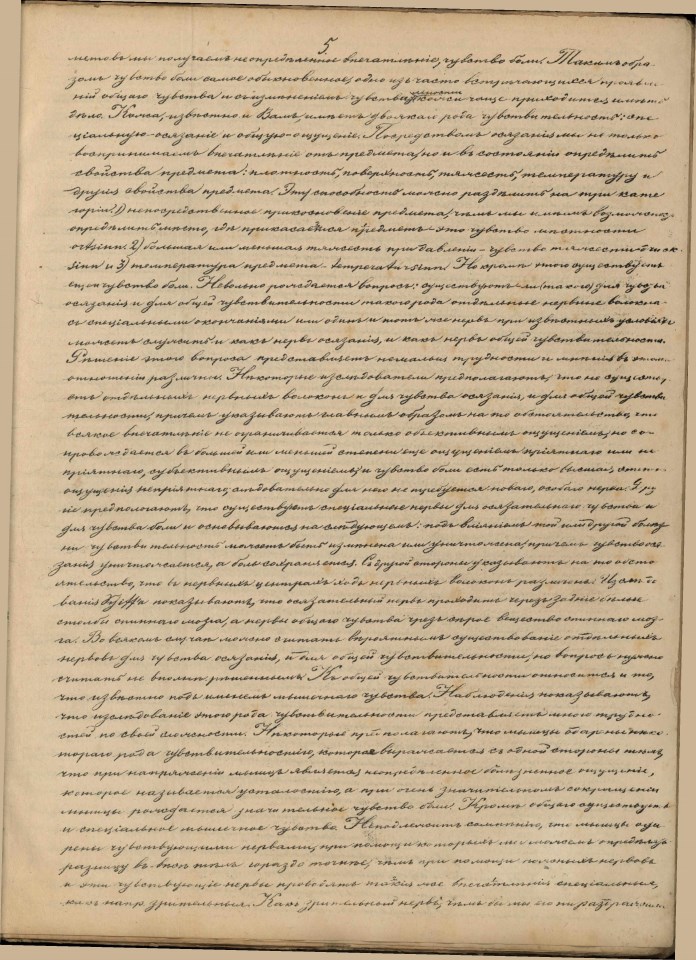 5.
метовъ мы получаемъ неопредѣленное впечатлѣніе, чувство боли. Такимъ обра-
зомъ чувство боли самое обыкновенное, одно изъ часто встрѣчающихся проявле-
ній общаго чувства и съ измѣненіемъ чувства чаще приходится имѣть
дѣло. Кожа, извѣстно и Вамъ, имѣетъ двоякаго рода чувствительность: спе-
ціальную – осязаніе и общую – ощущеніе. Посредствомъ осязанія мы не только
воспринимаемъ впечатлѣніе отъ предмета, но и въ состояніи опредѣлить
свойства предмета: плотность, поверхность, тяжесть, температуру и
другія свойства предмета. Эту способность можно раздѣлить на три кате-
горіи: 1) непосредственное прикосновеніе предмета, чѣмъ мы имѣемъ возможность
опредѣлить мѣсто, гдѣ прикасается предметъ – это чувство мѣстности
ortsinn 2) большая или меньшая тяжесть при давленіи – чувство тяжести
sinn и 3) температура предмета – temperatursinn. Но кромѣ этого существуетъ
еще чувство боли. Невольно рождается вопросъ: существуютъ ли для чувства
осязанія и для общей чувствительности такого рода отдѣльные нервные волокна
съ спеціальными окончаніями или одинъ и тотъ же нервъ при извѣстныхъ условіяхъ
можетъ служить и какъ нервъ осязанія, и какъ нервъ общей чувствительности.
Рѣшеніе этого вопроса представляетъ не малыя трудности и мнѣнія въ этомъ
отношеніи различны. Нѣкоторые изслѣдователи предполагаютъ, что не существу-
етъ отдѣльныхъ нервныхъ волоконъ и для чувства осязанія, и для общей чувстви-
тельности, причемъ указываютъ главнымъ образомъ на то обстоятельство, что
всякое впечатлѣніе не ограничивается только объективнымъ ощущеніемъ, но со-
провождается въ большей или меньшей степени еще ощущеніемъ пріятнаго или не
пріятнаго, субъективнымъ ощущеніемъ, и чувство боли есть только высшая степень
ощущенія непріятнаго, слѣдовательно для него не требуется новаго, особаго нерва. Дру-
гіе предполагаютъ, что существуютъ спеціальные нервы для осязательнаго чувства и
для чувства боли и основываются на слѣдующемъ: подъ вліяніемъ той или другой болѣз-
ни чувствительность можетъ быть измѣнена или уничтожена, причемъ чувство ося-
занія уничтожается, а боль сохраняется. Съ другой стороны указываютъ на то обсто-
ятельство, что въ нервныхъ центрахъ ходъ нервныхъ волоконъ различенъ. Изслѣдо-
ванія Schiff'а показываютъ, что осязательный нервъ проходитъ черезъ задніе бѣлые
столбы спиннаго мозга, а нервы общаго чувства чрезъ сѣрое вещество спиннаго моз-
га. Во всякомъ случаѣ можно считать вѣроятнымъ существованіе отдѣльныхъ
нервовъ для чувства осязанія, и для общей чувствительности, но вопросъ нужно
считать не вполнѣ рѣшеннымъ. Къ общей чувствительности относится и то,
что извѣстно подъ именемъ мышечнаго чувства. Наблюденія показываютъ,
что изслѣдованіе этого рода чувствительности представляетъ много трудно-
стей по своей сложности. Нѣкоторые предполагаютъ, что мышцы одарены нѣко-
тораго рода чувствительностію, которая выражается съ одной стороны тѣмъ,
что при напряженіи мышцъ является неопредѣленное болѣзненное ощущеніе,
которое называется усталостію, а при очень значительномъ сокращеніи
мышцы рождается значительное чувство боли. Кромѣ общаго существуетъ
и спеціальное мышечное чувство. Не подлежитъ сомнѣнію, что мышцы ода-
рены чувствующими нервами, при помощи которыхъ мы можемъ опредѣлять
разницу въ вѣсѣ тѣлъ гораздо точнѣе, чѣмъ при помощи кожныхъ нервовъ
и эти чувствующіе нервы проводятъ такія же впечатлѣнія спеціальныя,
какъ напр. зрительныя. Какъ зрительный нервъ, чѣмъ бы мы его ни раздражали